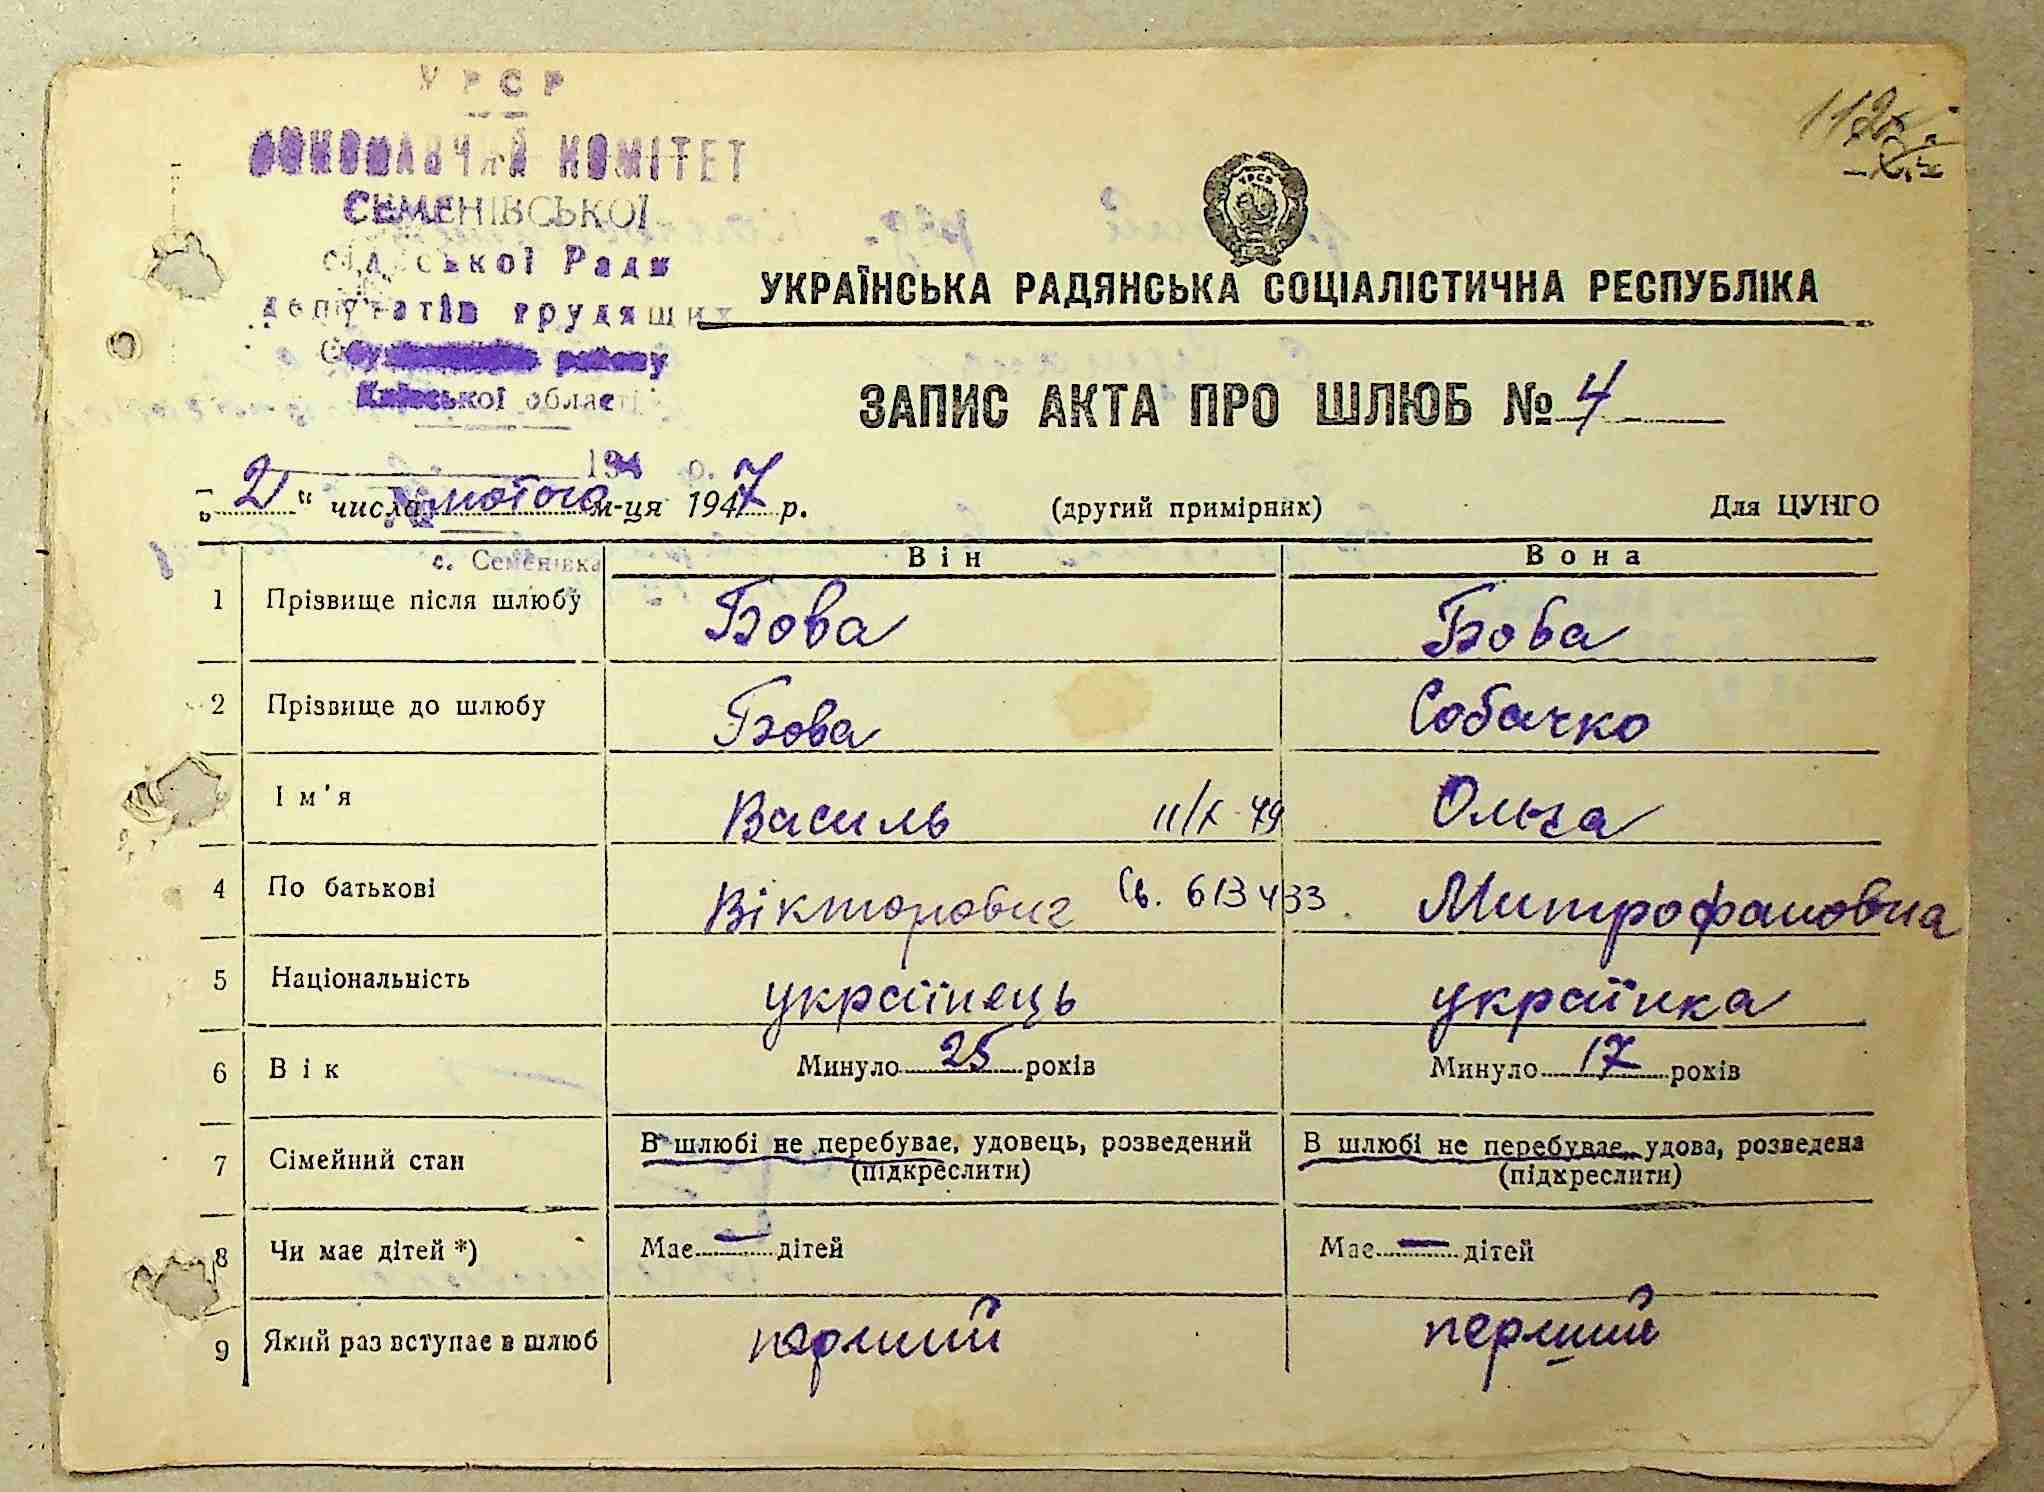 УРСР
ВИКОНАВЧИЙ КОМІТЕТ
СЕМЕНІВСЬКОЇ
сільської Ради
депутатів трудящих
району
Київської області
112
УРСР
УКРАЇНСЬКА РАДЯНСЬКА СОЦІАЛІСТИЧНА РЕСПУБЛІКА
ЗАПИС АКТА ПРО ШЛЮБ № 4
194 р.
„21“ числа лютого м-ця 1947 р. (другий примірник) Для ЦУНГО
с. Семенівка Він Вона
1 Прізвище після шлюбу Бова Бова
2 Прізвище до шлюбу Бова Собачко
Ім'я Василь 11/X-49 Ольга
4 По батькові Вікторович Св. 613433 Митрофановна
5 Національність українець українка
6 Вік Минуло 25 років Минуло 17 років
7 Сімейний стан В шлюбі не перебуває, удовець, розведений В шлюбі не перебуває, удова, розведена
(підкреслити) (підкреслити)
8 Чи має дітей *) Має — дітей Має — дітей
9 Який раз вступає в шлюб перший перший